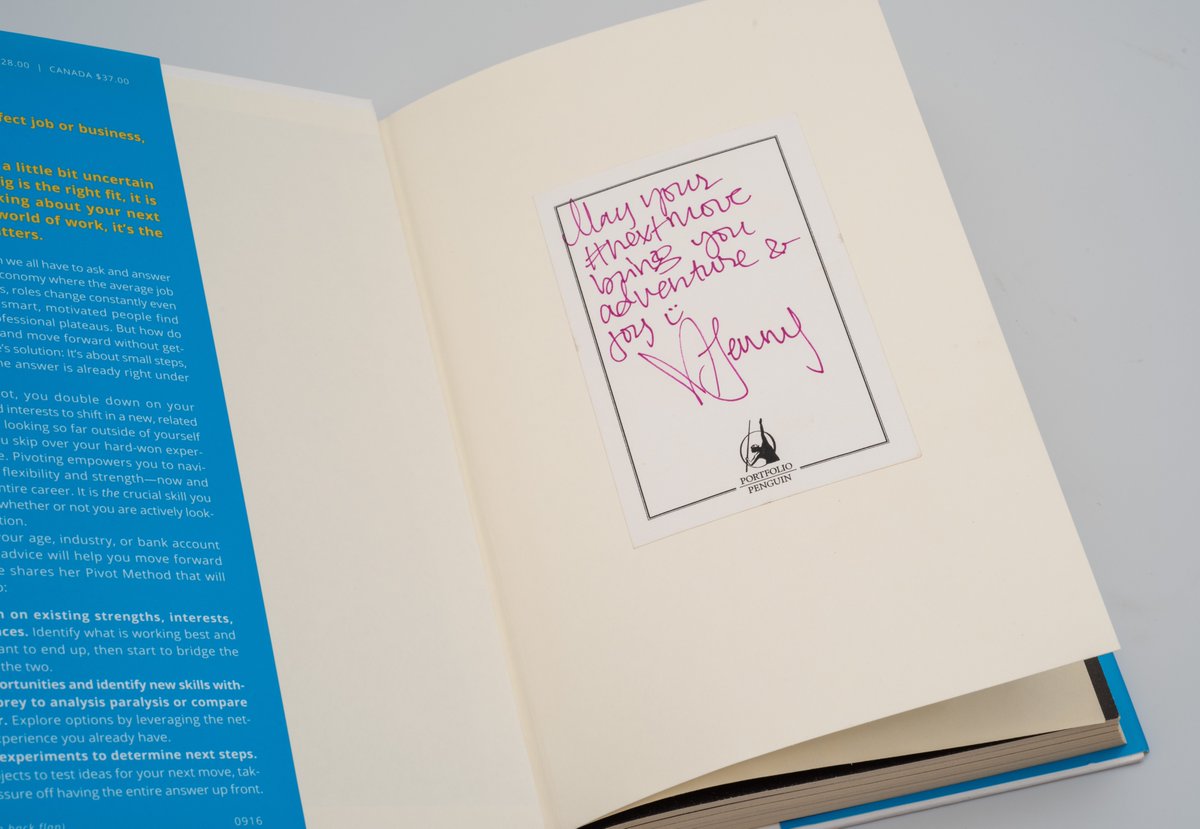 28.00 | CANADA $37.00
fect job or business,
a little bit uncertain
ig is the right fit, it is
king about your next
world of work, it's the
tters.
n we all have to ask and answer
conomy where the average job
s, roles change constantly even
smart, motivated people find
ofessional plateaus. But how do
and move forward without get-
e's solution: It's about small steps,
he answer is already right under
ot, you double down on your
d interests to shift in a new, related
looking so far outside of yourself
u skip over your hard-won exper-
e. Pivoting empowers you to navi-
flexibility and strength—now and
ntire career. It is the crucial skill you
whether or not you are actively look-
tion.
our age, industry, or bank account
advice will help you move forward
e shares her Pivot Method that will
o:
n on existing strengths, interests,
nces. Identify what is working best and
ant to end up, then start to bridge the
the two.
ortunities and identify new skills with-
prey to analysis paralysis or compare
r. Explore options by leveraging the net-
xperience you already have.
experiments to determine next steps.
ojects to test ideas for your next move, tak-
ssure off having the entire answer up front.
back flap)
0916
May your
#nextmove
bring you
adventure &
joy :)
Jenny
PORTFOLIO
PENGUIN